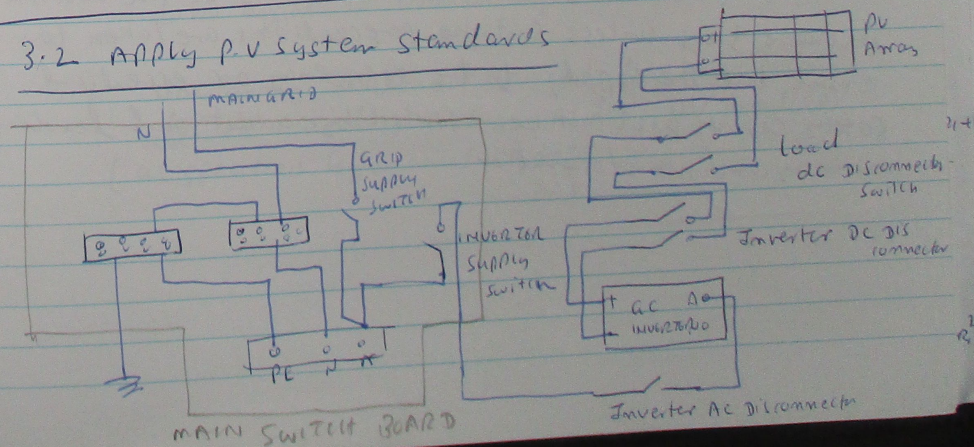 3.2 APPLY P.V System Standards
MAIN GRID
N
GRID
SUPPLY
SWITCH
INVERTER
SUPPLY
SWITCH
PE N A
MAIN SWITCH BOARD
PV
Array
+
-
Load
dc Disconnector
Switch
Inverter DC Dis
connector
+ GC A
- INVERTER
Inverter AC Disconnector